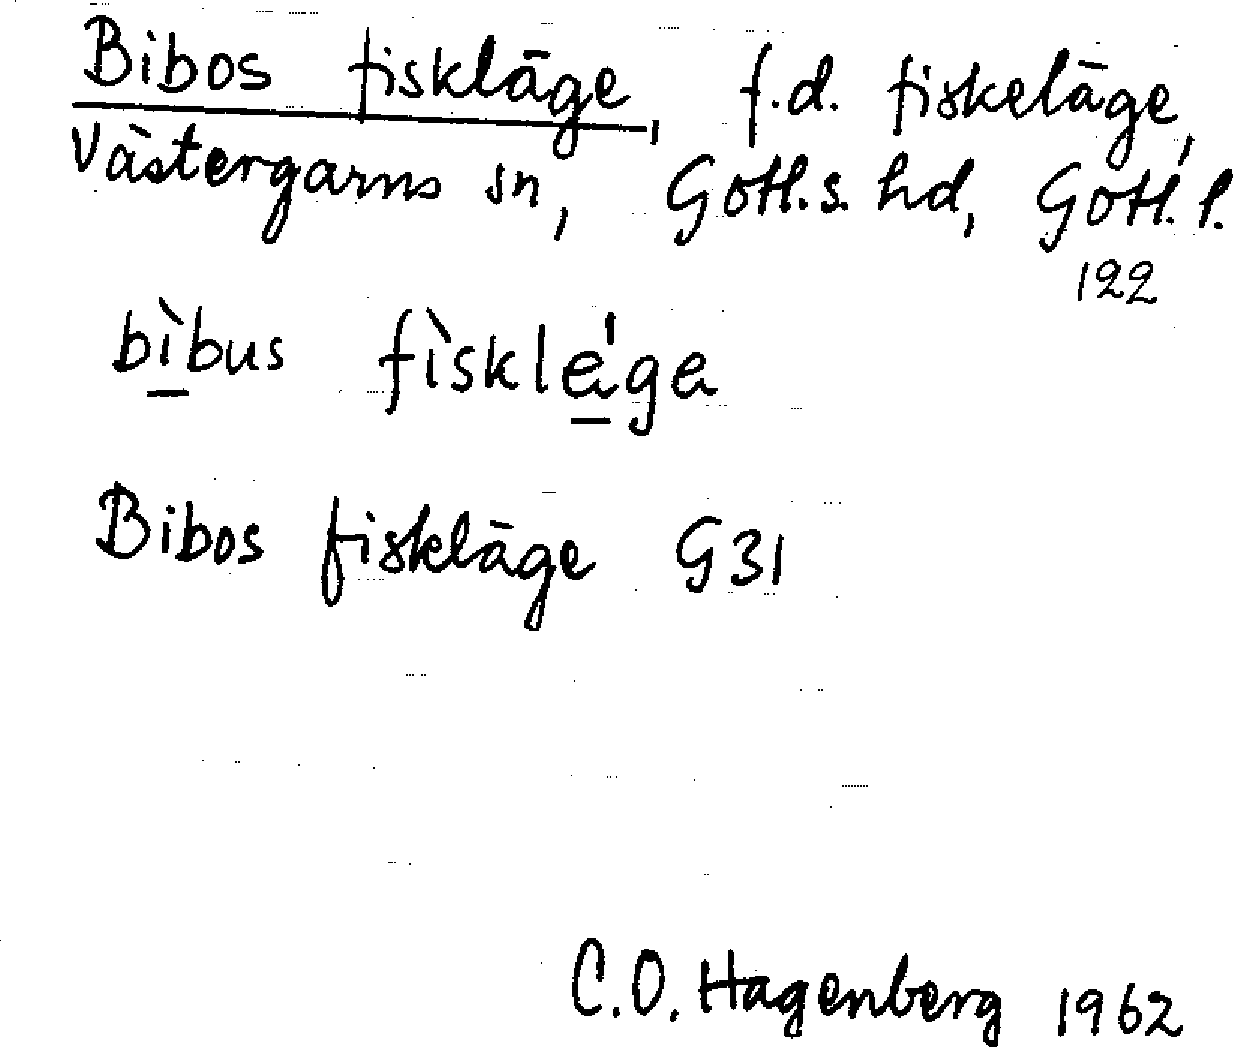 Bibos fiskläge, f.d. fiskeläge,
Västergarns sn, Gotl.s. hd, Gotl. l.
122
bìbus fìskle̍ge
Bibos fiskläge G31
C.O. Hagenberg 1962